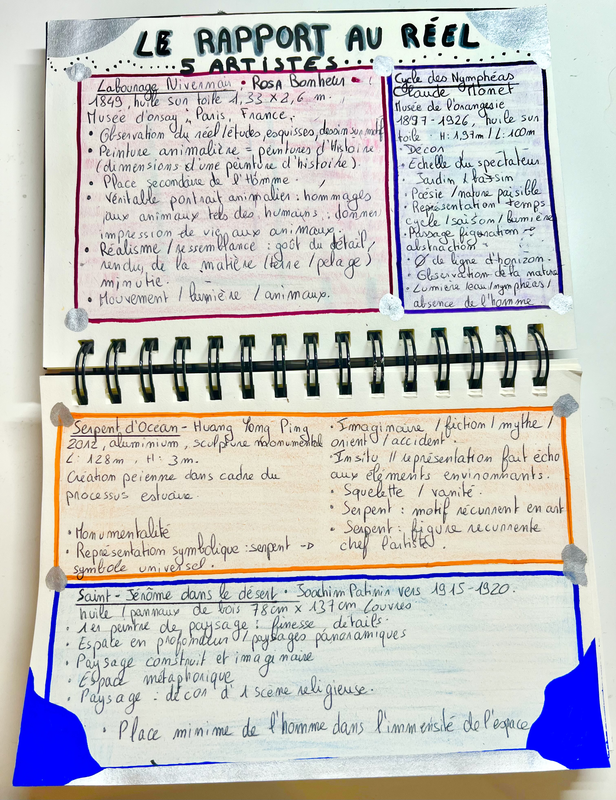 LE RAPPORT AU RÉEL
5 ARTISTES
Labourage Nivernais • Rosa Bonheur •
1849, huile sur toile 1,33 x 2,6 m.
Musée d'orsay, Paris, France.
• Observation du réel/études, esquisses, dessin sur motif
• Peinture animalière = peintures d'histoire
(dimensions d'une peinture d'histoire).
• Place secondaire de l'Homme.
• Véritable portrait animalier : hommages
aux animaux tels des humains : donner
impression de vie aux animaux.
• Réalisme / ressemblance : goût du détail,
rendu de la matière (terre / pelage)
minutie.
• Mouvement / lumière / animaux.
Cycle des Nymphéas
Claude Monet
Musée de l'orangerie
1897-1926, huile sur
toile • H: 1,97m / L: 100m
Décor
• Echelle du spectateur
Jardin / bassin
• Poésie / nature paisible
• Représentation temps
cycle / saison / lumière
• Passage figuration →
abstraction
• Ø de ligne d'horizon.
• Observation de la nature
• Lumière /eau/nymphéas/
absence de l'homme
Serpent d'Océan - Huang Yong Ping
2012, aluminium, sculpture monumentale
L: 128m, H: 3m.
Création péienne dans cadre du
processus estuaire.
• Monumentalité
• Représentation symbolique : serpent →
symbole universel.
• Imaginaire / fiction / mythe /
orient / accident.
• Insitu // représentation fait écho
aux éléments environnants.
• Squelette / vanité.
• Serpent : motif récurrent en art
• Serpent : figure recurrente
chef l'artiste.
Saint-Jérôme dans le désert • Joachim Patinir vers 1915-1920.
huile / pannaux de bois 78cm x 137cm Louvres
• 1er peintre de paysage : finesse, détails.
• Espace en profondeur / paysages panoramiques
• Paysage construit et imaginaire
• Espace métaphorique
• Paysage : décor d'1 scène religieuse.
• Place minime de l'homme dans l'immensité de l'espace